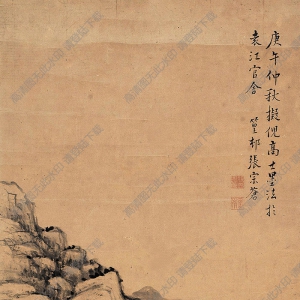 庚午仲秋擬倪高士墨法於
袁江官舍
篁邨張宗蒼